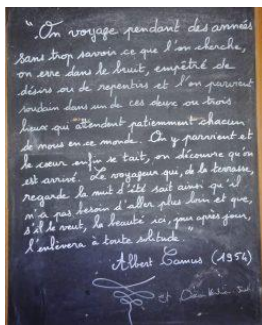 "On voyage pendant des années
sans trop savoir ce que l'on cherche,
on erre dans le bruit, empêtré de
désirs ou de repentirs et l'on parvient
soudain dans un de ces deux ou trois
lieux qui attendent patiemment chacun
de nous en ce monde. On y parvient et
le cœur enfin se tait, on découvre qu'on
est arrivé. Le voyageur qui, de la terrasse,
regarde la nuit d'été sait ainsi qu'il
n'a pas besoin d'aller plus loin et que,
s'il le veut, la beauté ici, jour après jour,
l'enlèvera à toute solitude."
Albert Camus (1954)